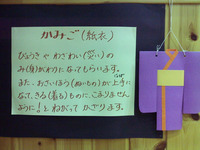 かみご(紙衣)
びょうき や わざわい(災い)の
み(身)がわりになってもらいます。
また、おさいほう(ぬいもの)が上手に
なって、きる(着る)ものに、こまりません
ように!とねがって かざります。